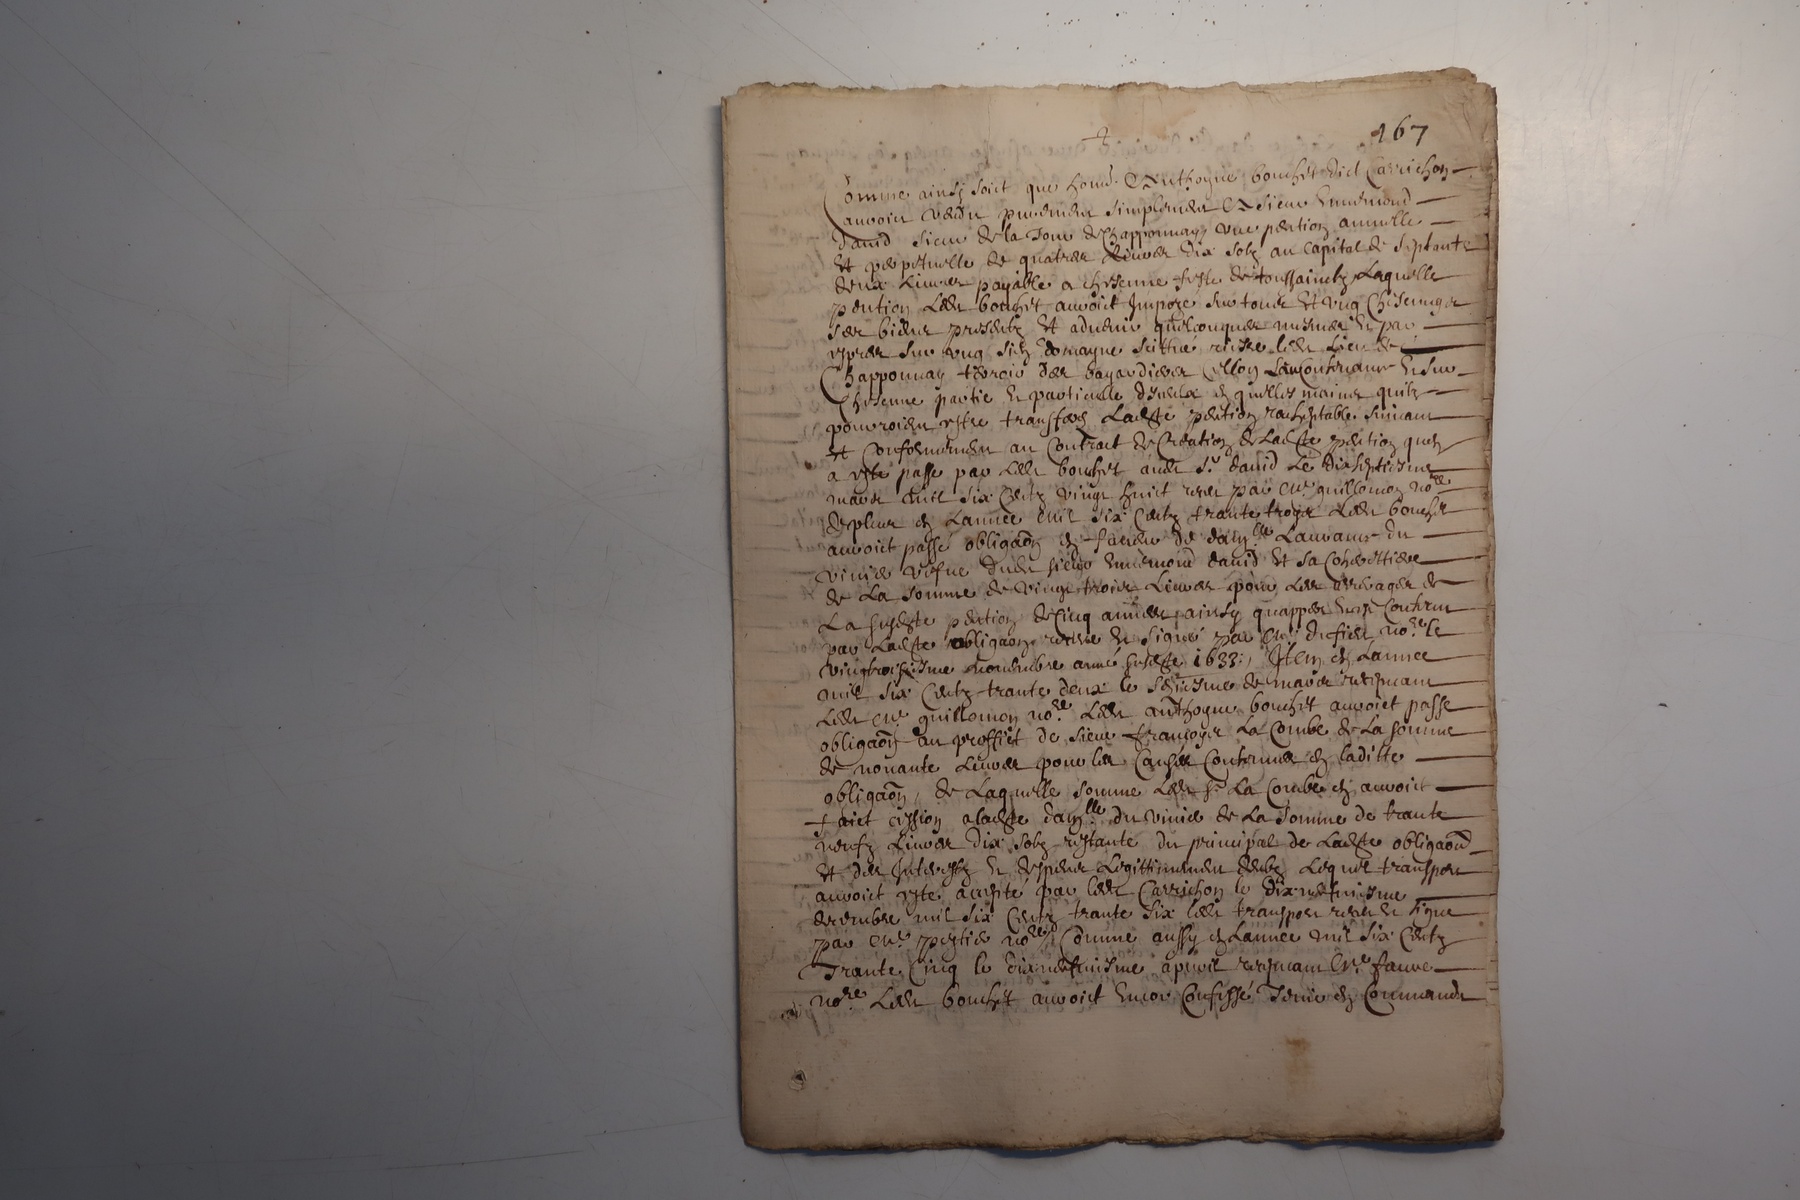 167
Comme ainsy soict que hond. Anthoyne bouchet dict Carrichon
auroict vendu purement simplement A sieur Enemond
david sieur de la Tour de Chapponnay une pention annuelle
et perpetuelle de quatres livres dix solz au capital de septante
deux livres payable a chescune feste de toussainctz Laquelle
pention Ledt bouchet auroict Impozé sur tous et ung Chescungs
ses biens presentz et advenir quelconques mesmes et par
expres sur ung sien domayne scittué riesre ledt lieu de
Chapponnay terroir des bayardieres Cellon Sa Contenant et sur
Chescune partie et particulle d'iceux en quelles mains quilz
pourroient estre transferes Ladte pention rachetable suivant
et Conformement au Contract de Creation de Ladte pention quen
a este passe par Ledt bouchet audt Sr david Le dixseptiesme
mars mil six Centz vingt huict receu par Me guillomon nore
de plus en Lannee mil six Centz trante troys Ledt bouchet
auroict passé obligaon en faveur de damlle Laurance du
vinier vefve dudt sieur Enemond david et sa Coheritiere
de La somme de vingt troys Livres pour Les arreages de
La susdte pention de Cinq années ainsy quappert Contenu
par Ladte obligaon receue et signé par Me dufier nore le
vingtroisiesme novembre anné susdte 1633, Item en Lannee
mil six Centz trante deux le seiziesme de mars recepvant
Ledt Me guillomon nore Ledt anthoyne bouchet auroict passé
obligaon au proffict de sieur françoys La Combe de La somme
de nonante Livres pour les Causes Contenues en laditte
obligaon, de Laquelle somme Ledt Sr La Combe en auroict
faict cession a ladte damlle du vinier de La somme de trante
neufz Livres dix solz restante du principal de Ladte obligaon
et des Interestz et despens Legittimement deubz Lequel transport
auroict este accepté par ledt Carrichon le dix neufviesme
decembre mil six Centz trante six ledt transport receu et signe
par Me nore Comme aussy en Lannee mil six Centz
Trante Cinq le dix neufviesme apvril recepvant Me faure
nore Ledt bouchet auroict encor Confessé Tenir en Commande